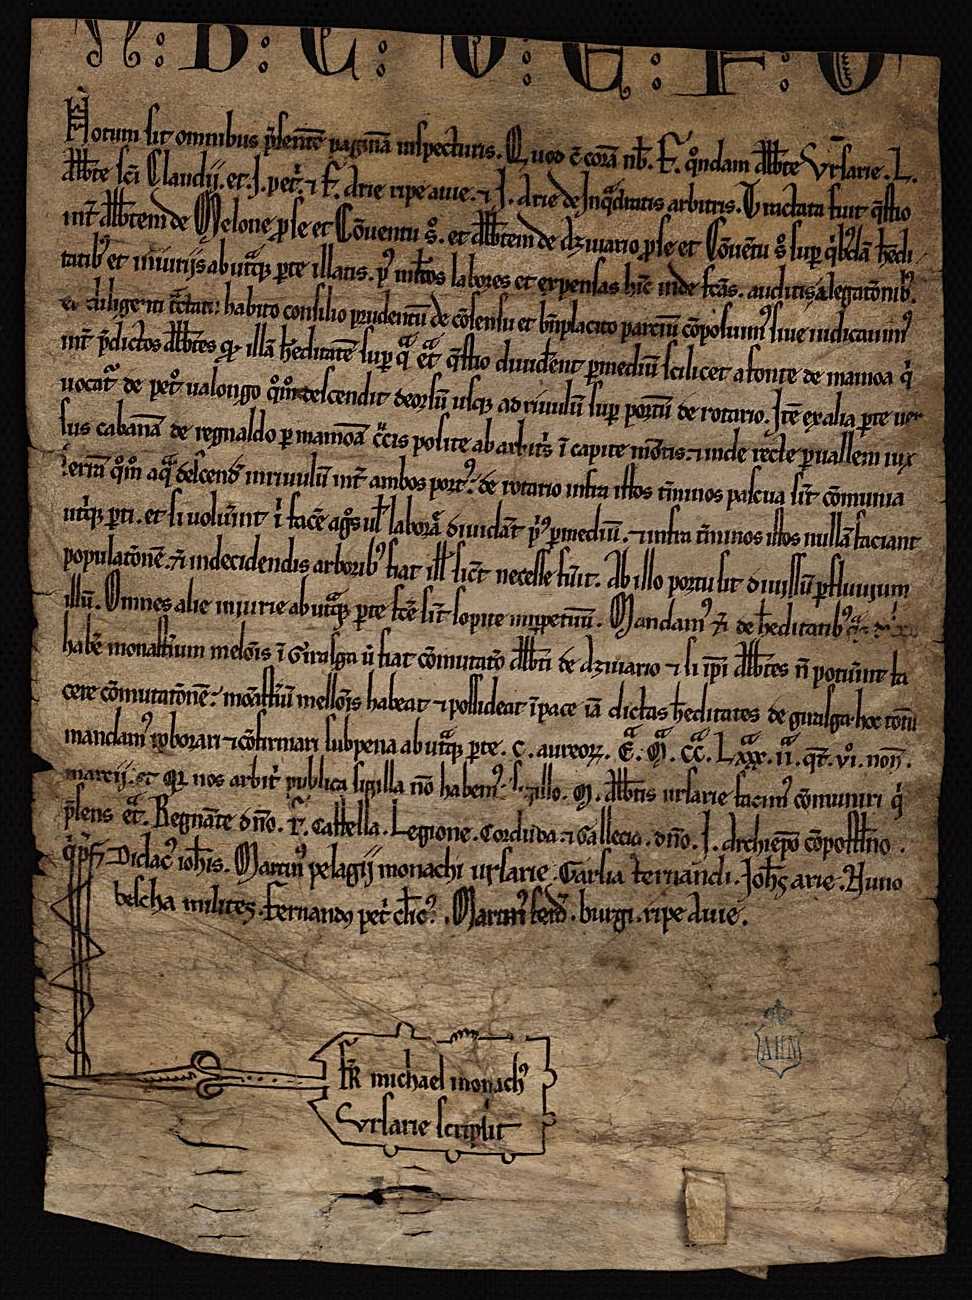 A : B : C : D : E : F : G
Notum sit omnibus p̄sentē paginā inspecturis. Quod ē corā nb̄. F. qōndam abb̄te Vrsarie. L.
abb̄te sc̄i Claudij. et. J. pet̄. ⁊ F. arie ripe auie. ⁊ J. arie de arbitris. Tractata fuit q̄stio
int̄ abb̄tem de Melone p̱ se et Cōuentu s̄. et abb̄tem de azuario p̱ se et Cōuētu s̄ sup̱ q̇bᵈā h̄edi
tatibꝰ et iniurijs ab utᵃqꝫ parte illatis. pꝰ mltos labores et expensas hīc inde fc̄as. auditis allegatōnibꝰ.
et diligent̄ habito consilio prudentū de cōsensu et bn̄placito parciū cōposuimꝰ siue iudicauimꝰ
int̄ p̄dictos abb̄tes qꝫ illā h̄editatē sup̱ qᵃ eᵃt q̄stio diuidēnt p̱ mediū scilicet a fonte de mamoa q̇
uocat̄ de pet̄ ualongo qᵒmᵒ descendit deorsū usqꝫ ad riuulū sup̱ portū de rotario. Jtē ex alia parte uer
sus cabanā de regnaldo p̱ mamoā cᵃcis posite ab arbit̄s ī capite mōtis ⁊ inde recte p̱ uallem iux
ᵒ aqᵃ descend̄ in riuulū int̄ ambos portꝰ de rotario infra istos t̄minos pascua sīt cōmunia
ut̄qꝫ parti. et si uolūint ī facē ag̊s ul̄ laborā diuidāt pꝰ p̱ mediū. ⁊ infra t̄minos istos nullā faciant
populatōnē. ⁊ in decidendis arboribꝰ fiat ill̄ sic̄t necesse fūit. Ab illo portu sit diuisiū p̱ fluuium
illū. Omnes alie iniurie ab utᵃqꝫ parte fc̄e sīt sopite inp̱petuū. Mandamꝰ de h̄editatibꝰ
habē monast̄ium melōis ī Giralga ū fiat cōmutatō abb̄ti de azuario ⁊ si ip̄i abb̄tes n̄ potūint fa
cere cōmutatōnē monst̄iū mellōis habeat ⁊ possideat ī pace iā dictas h̄editates de guralga. hoc totū
mandamꝰ roborari ⁊ cōfirmari sub pena ab utᵃqꝫ parte. C. aureorꝝ. Eᵃ. Mᵃ. CCᵃ. Lxxxᵃ. IIᵃ. qᵒt. vıᵒ. non̄.
marcij. et qꝫ nos arbit̄ publica sigilla nō habemꝰ sigillo. M. abb̄tis ursarie facimꝰ cōmuniri q̇
p̄sens eᵃt. Regnāte dn̄o. F. Castella. Legione. Corduba ⁊ Gallecia. dn̄o. J. archiep̄o cōpostlāno.
Didacꝰ ioh̄is. Martinꝰ pelagij monachi ursarie. Garsia fernandi. Joh̄s arie. Nuno
belcha milites. Fernandꝰ pet̄ cl̄icꝰ. Martinꝰ ferd̄. burgi. ripe Auie.
fr̄ michael monachꝰ
Vrsarie scripsit
AHN